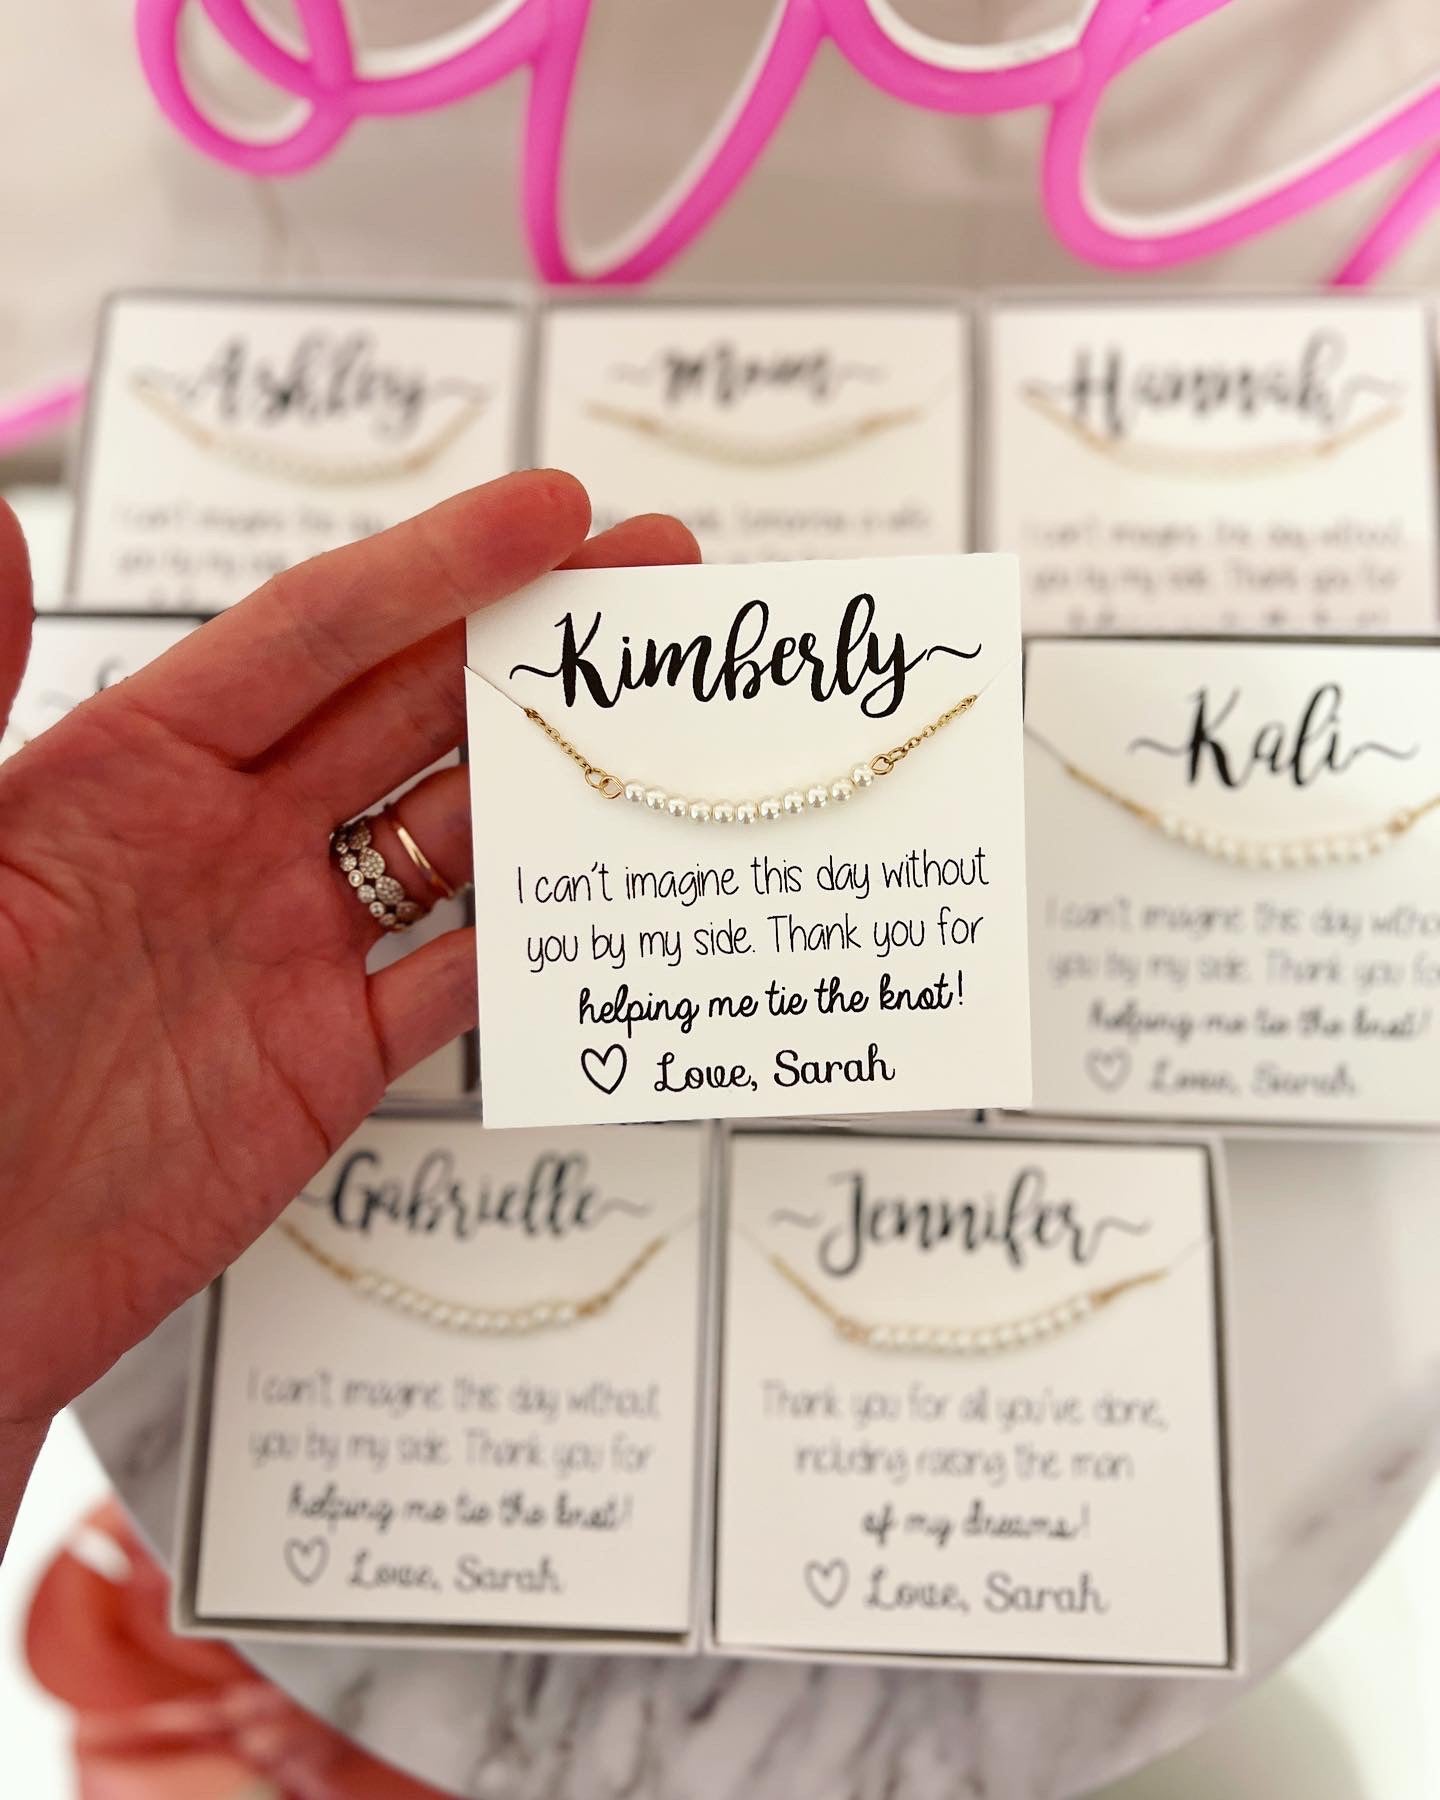 Ashley
Mom
Hannah
I can't imagine this day
you by my side.
tomorrow
I can't imagine this day without
you by my side. Thank you for
~Kimberly~
I can't imagine this day without
you by my side. Thank you for
helping me tie the knot!
♡ Love, Sarah
~Kali~
I can't imagine this day
you by my side. Thank you
helping me tie the knot!
♡ Love, Sarah
Gabrielle~
I can't imagine this day without
you by my side. Thank you for
helping me tie the knot!
♡ Love, Sarah
~Jennifer~
Thank you for all you've done,
including raising the man
of my dreams!
♡ Love, Sarah